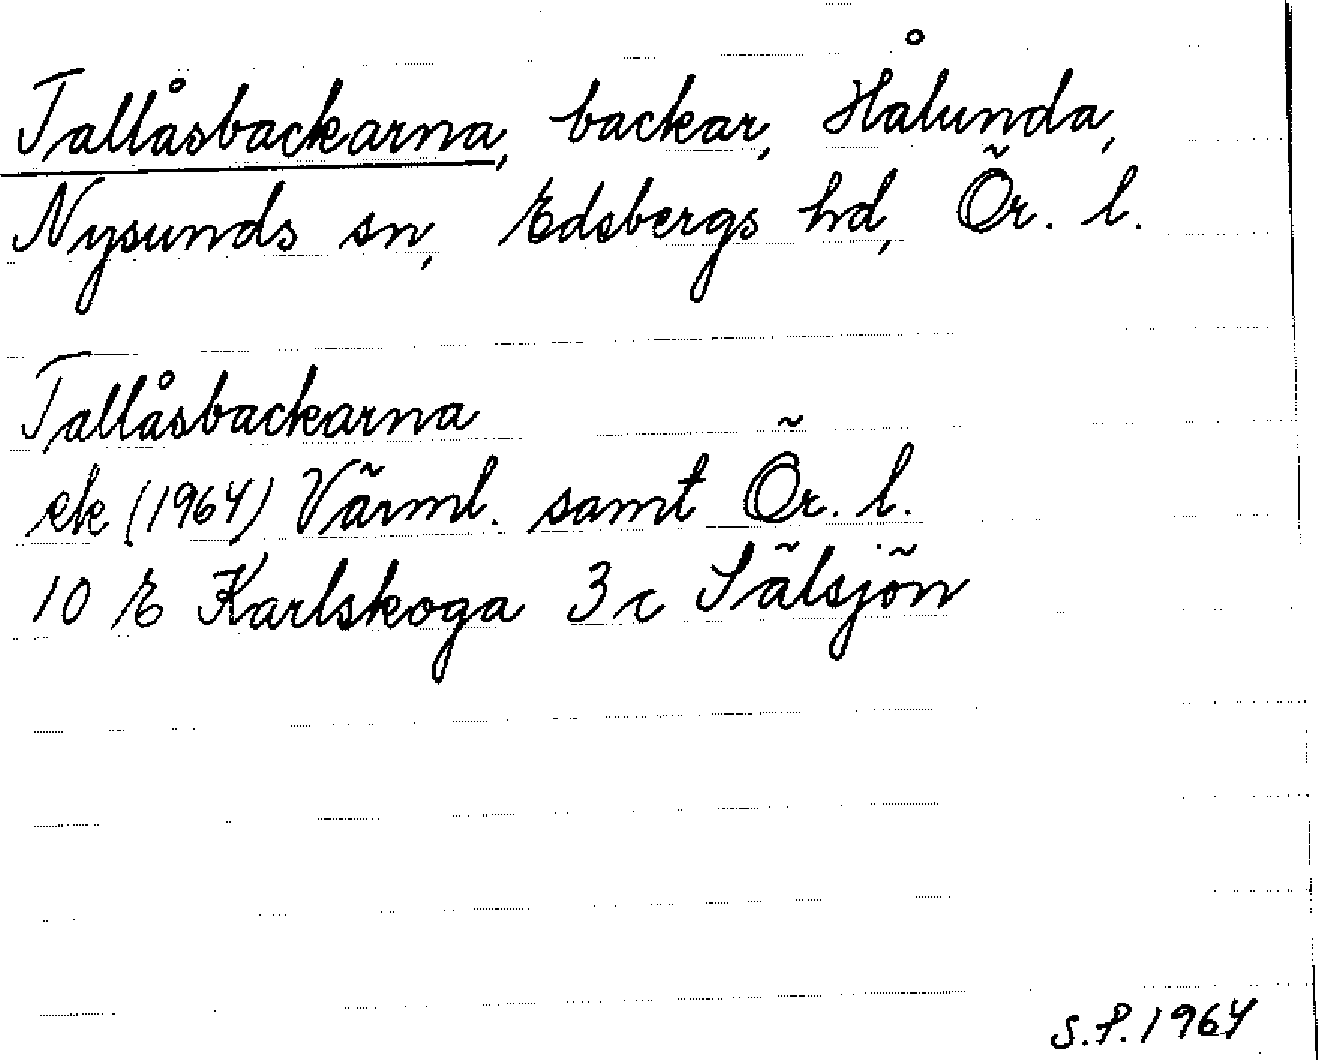 Tallåsbackarna, backar, Hålunda,
Nysunds sn, Edsbergs hd, Ör. l.
Tallåsbackarna
ek (1964) Värml. samt Ör. l.
10 E Karlskoga 3 c Sälsjön
S.F. 1964